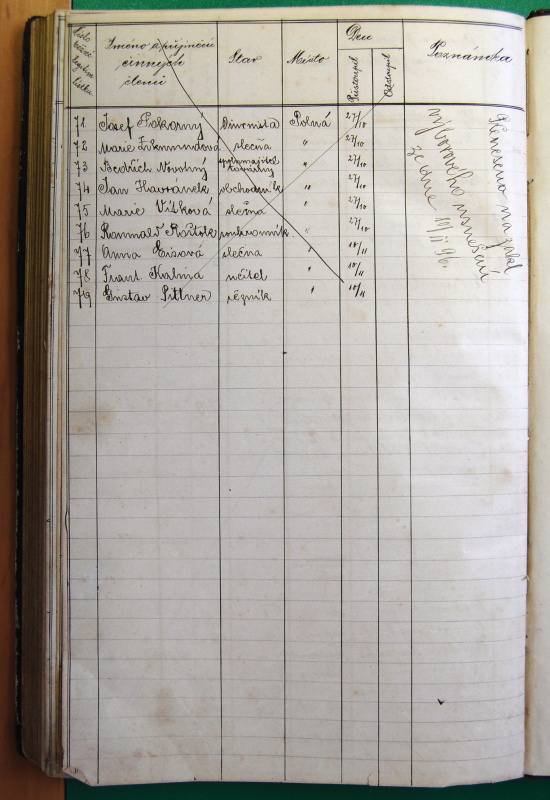 Číslo
Jméno a příjmení
činných
členů
Stav
Místo
Den
Přistoupil
Odstoupil
Poznámka
71 Josef Pokorný Diurnista Polná 27/10
72 Marie slečna " 27/10
73 Bedřich Novotný spolumajitel továrny " 27/10
74 Jan Havránek obchodník " 27/10
75 Marie Vítková slečna " 27/10
76 Romuald " 27/10
77 Anna Eisová slečna " 10/11
78 Frant Kalina učitel " 10/11
79 Gustav Pittner řezník " 10/11
Přeneseno na zákl
výborového usnešení
ze dne 10/II 96.